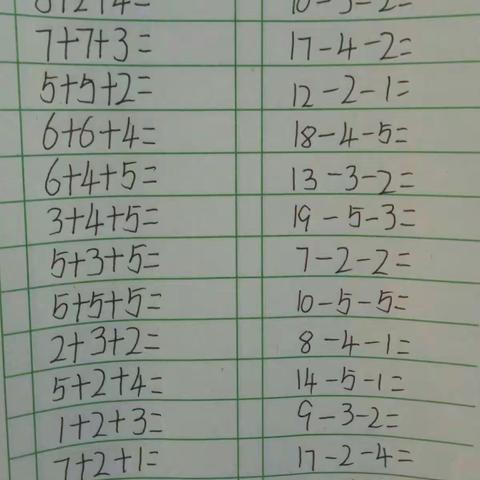 7+7+3= 17-4-2=
5+5+2= 12-2-1=
6+6+4= 18-4-5=
6+4+5= 13-3-2=
3+4+5= 19-5-3=
5+3+5= 7-2-2=
5+5+5= 10-5-5=
2+3+2= 8-4-1=
5+2+4= 14-5-1=
1+2+3= 9-3-2=
7+2+1= 17-2-4=